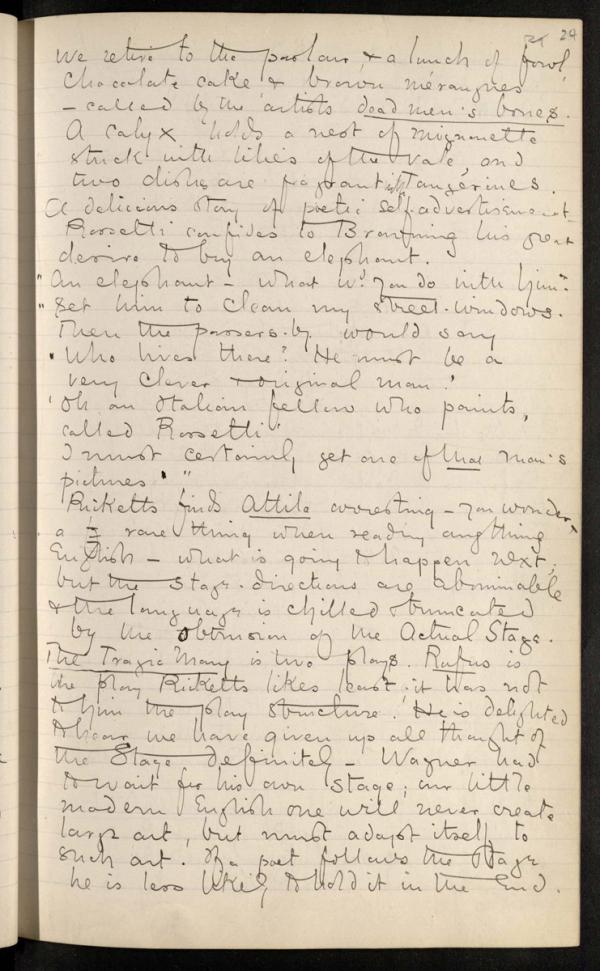 24
we retire to the parlour, & a lunch of fowl,
chocolate cake & brown mérangues
– called by the artists dead men's bones.
A calyx holds a nest of mignonette
stuck with lilies of the vale, and
two dishes are fragrant with Tangerines.
A delicious story of poetic self-advertisement
Rossetti confides to Browning his great
desire to buy an elephant.
"An elephant – what wd. you do with him?"
"Set him to clean my street-windows.
Then the passers-by would say
'Who lives there? He must be a
very clever & original man.'
'Oh an Italian fellow who paints,
called Rossetti.'
I must certainly get one of that man's
pictures'"
Ricketts finds Attila arresting – you wonder,
a rare thing when reading anything
English – what is going to happen next,
but the stage-directions are abominable
& the language is chilled & truncated
by the obtrusion of the Actual Stage.
The Tragic Mary is two plays. Rufus is
the play Ricketts likes least: it has not
to him the play structure. He is delighted
to hear we have given up all thought of
the Stage definitely – Wagner had
to wait for his own stage; our little
modern English one will never create
large art, but must adapt itself to
such art. If a poet follows the Stage
he is less likely to hold it in the End.